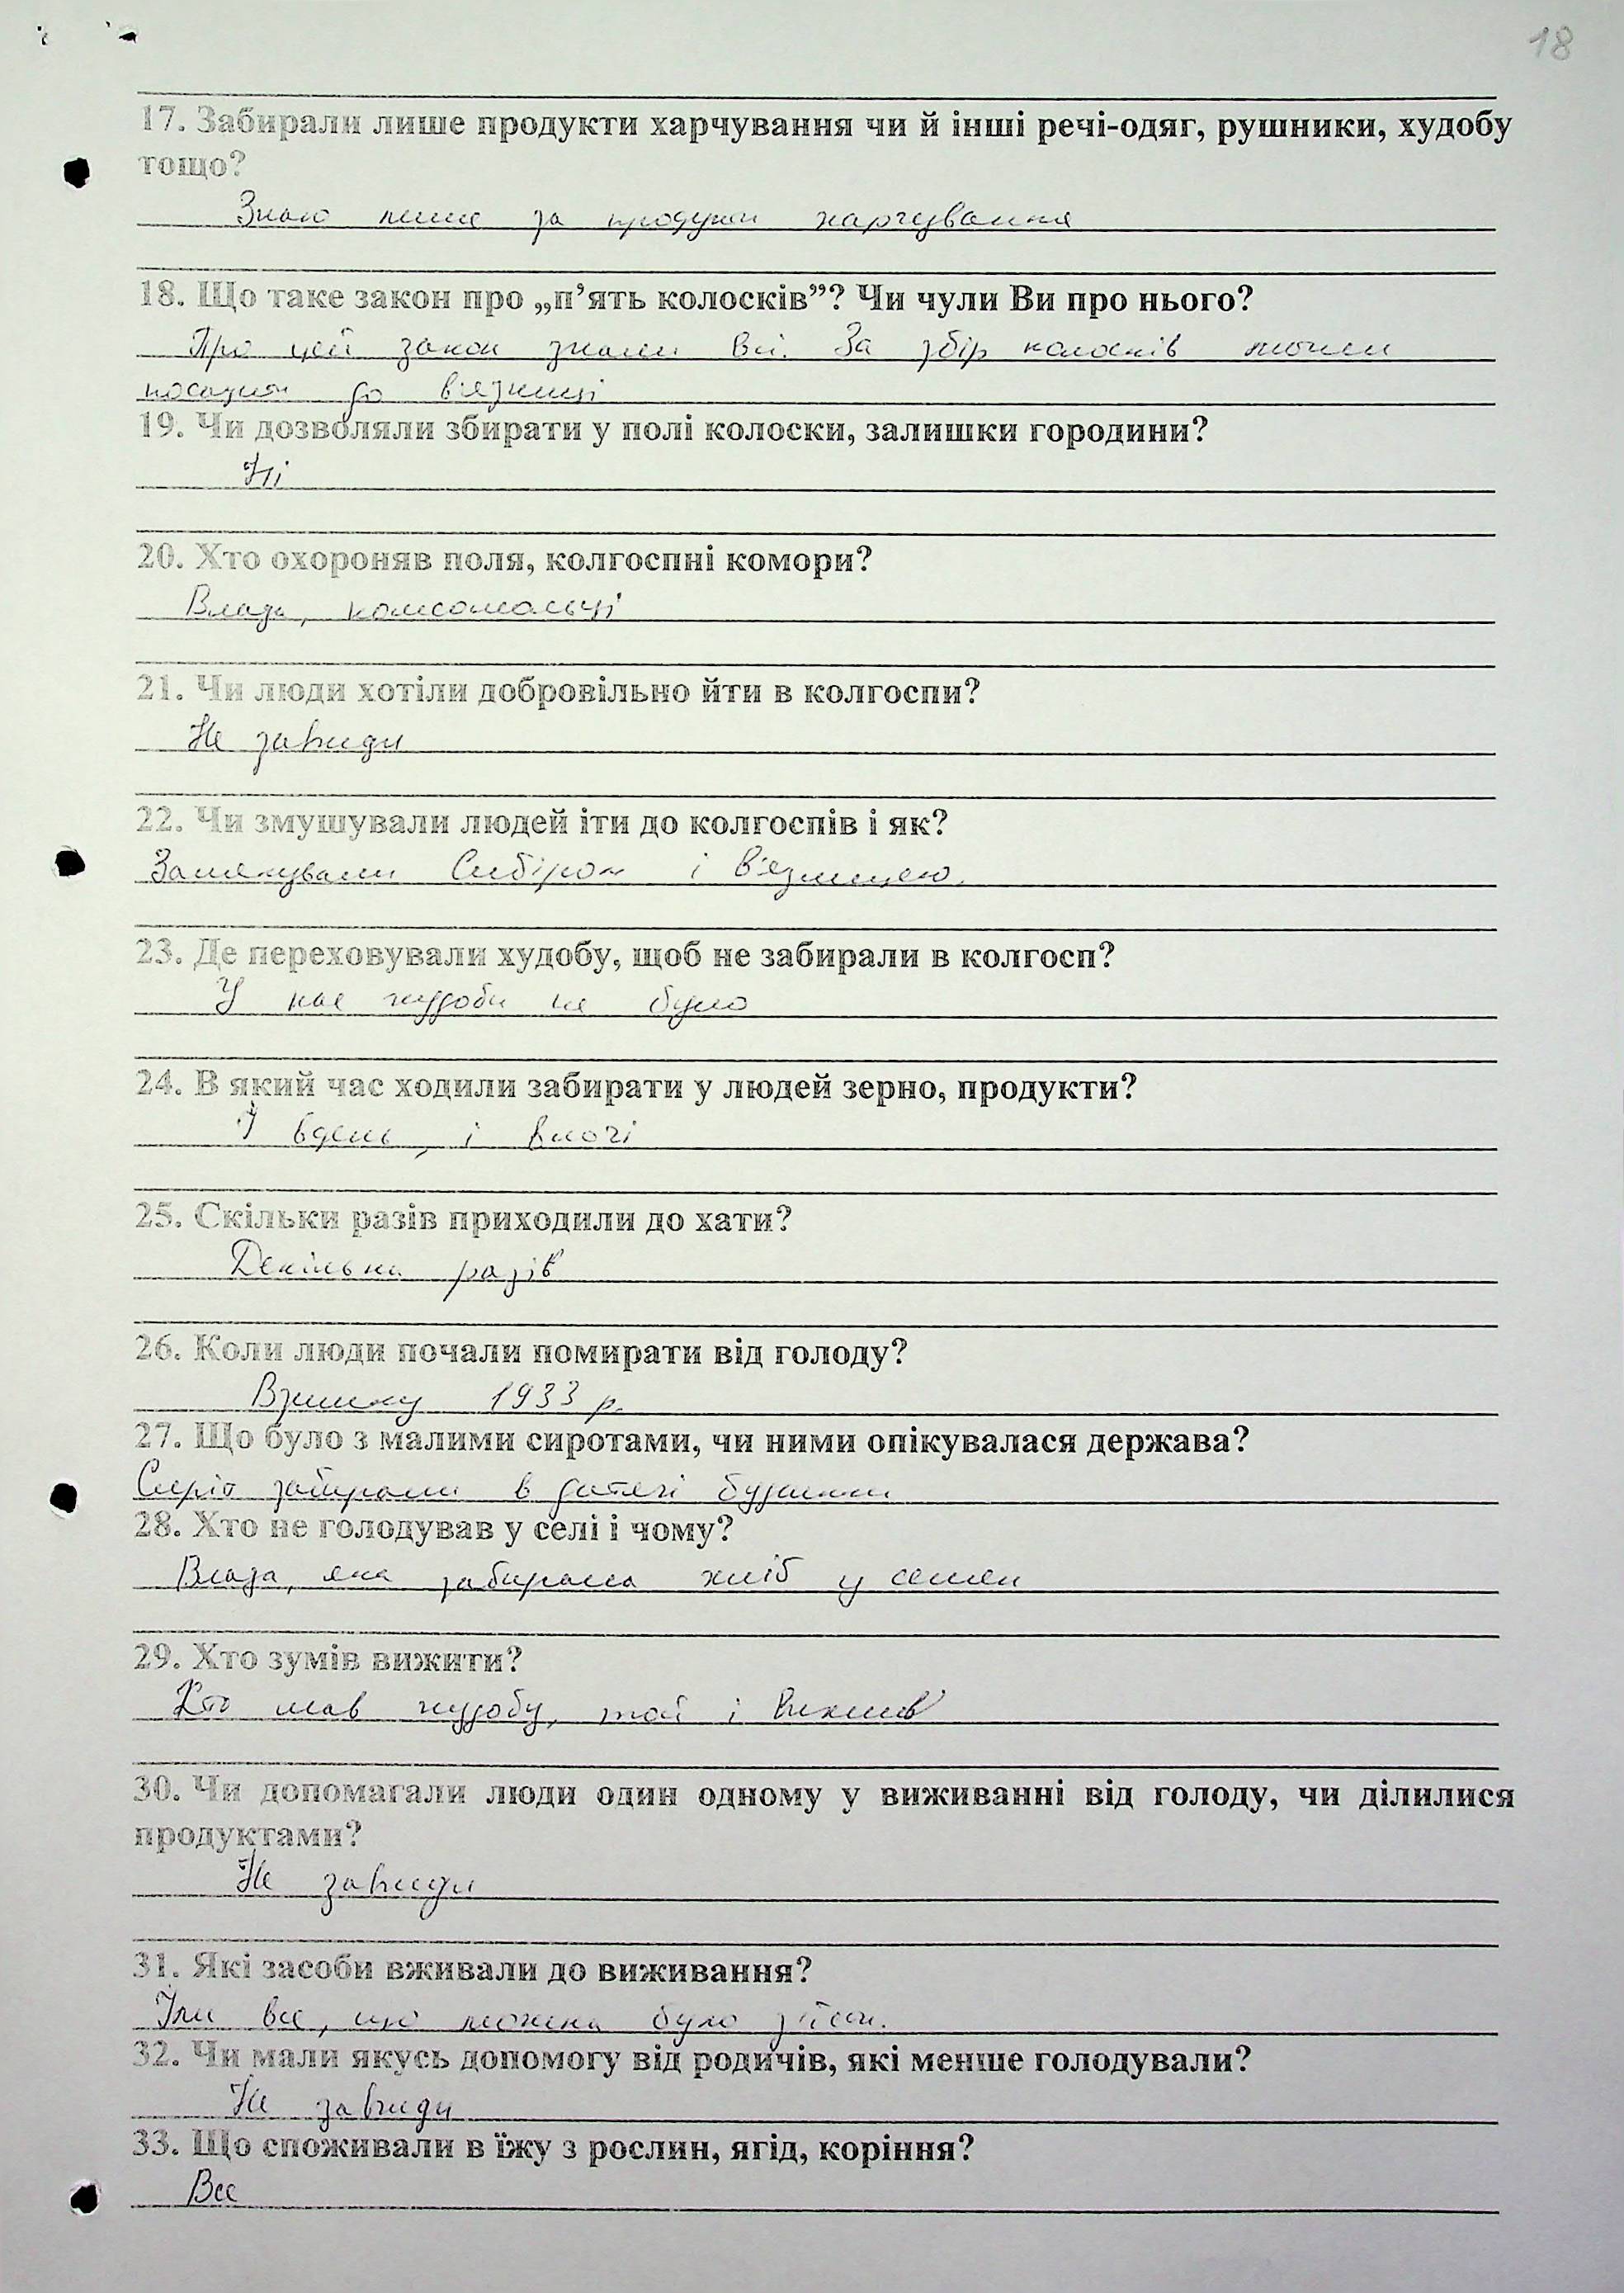 18
17. Забирали лише продукти харчування чи й інші речі-одяг, рушники, худобу
тощо?
Знаю лише за продукти харчування
18. Що таке закон про „п’ять колосків”? Чи чули Ви про нього?
Про цей закон знали всі. За збір колосків могли
посадити до в'язниці
19. Чи дозволяли збирати у полі колоски, залишки городини?
Ні
20. Хто охороняв поля, колгоспні комори?
Влада, комсомольці
21. Чи люди хотіли добровільно йти в колгоспи?
Не завжди
22. Чи змушували людей іти до колгоспів і як?
Залякували Сибіром і в'язницею.
23. Де переховували худобу, щоб не забирали в колгосп?
У нас худоби не було
24. В який час ходили забирати у людей зерно, продукти?
І вдень, і вночі
25. Скільки разів приходили до хати?
Декілька разів
26. Коли люди почали помирати від голоду?
Взимку 1933 р.
27. Що було з малими сиротами, чи ними опікувалася держава?
Сиріт забирали в дитячі будинки
28. Хто не голодував у селі і чому?
Влада, яка забирала хліб у селян
29. Хто зумів вижити?
Хто мав худобу, той і вижив
30. Чи допомагали люди один одному у виживанні від голоду, чи ділилися
продуктами?
Не завжди
31. Які засоби вживали до виживання?
Їли все, що можна було з'їсти.
32. Чи мали якусь допомогу від родичів, які менше голодували?
Не завжди
33. Що споживали в їжу з рослин, ягід, коріння?
Все